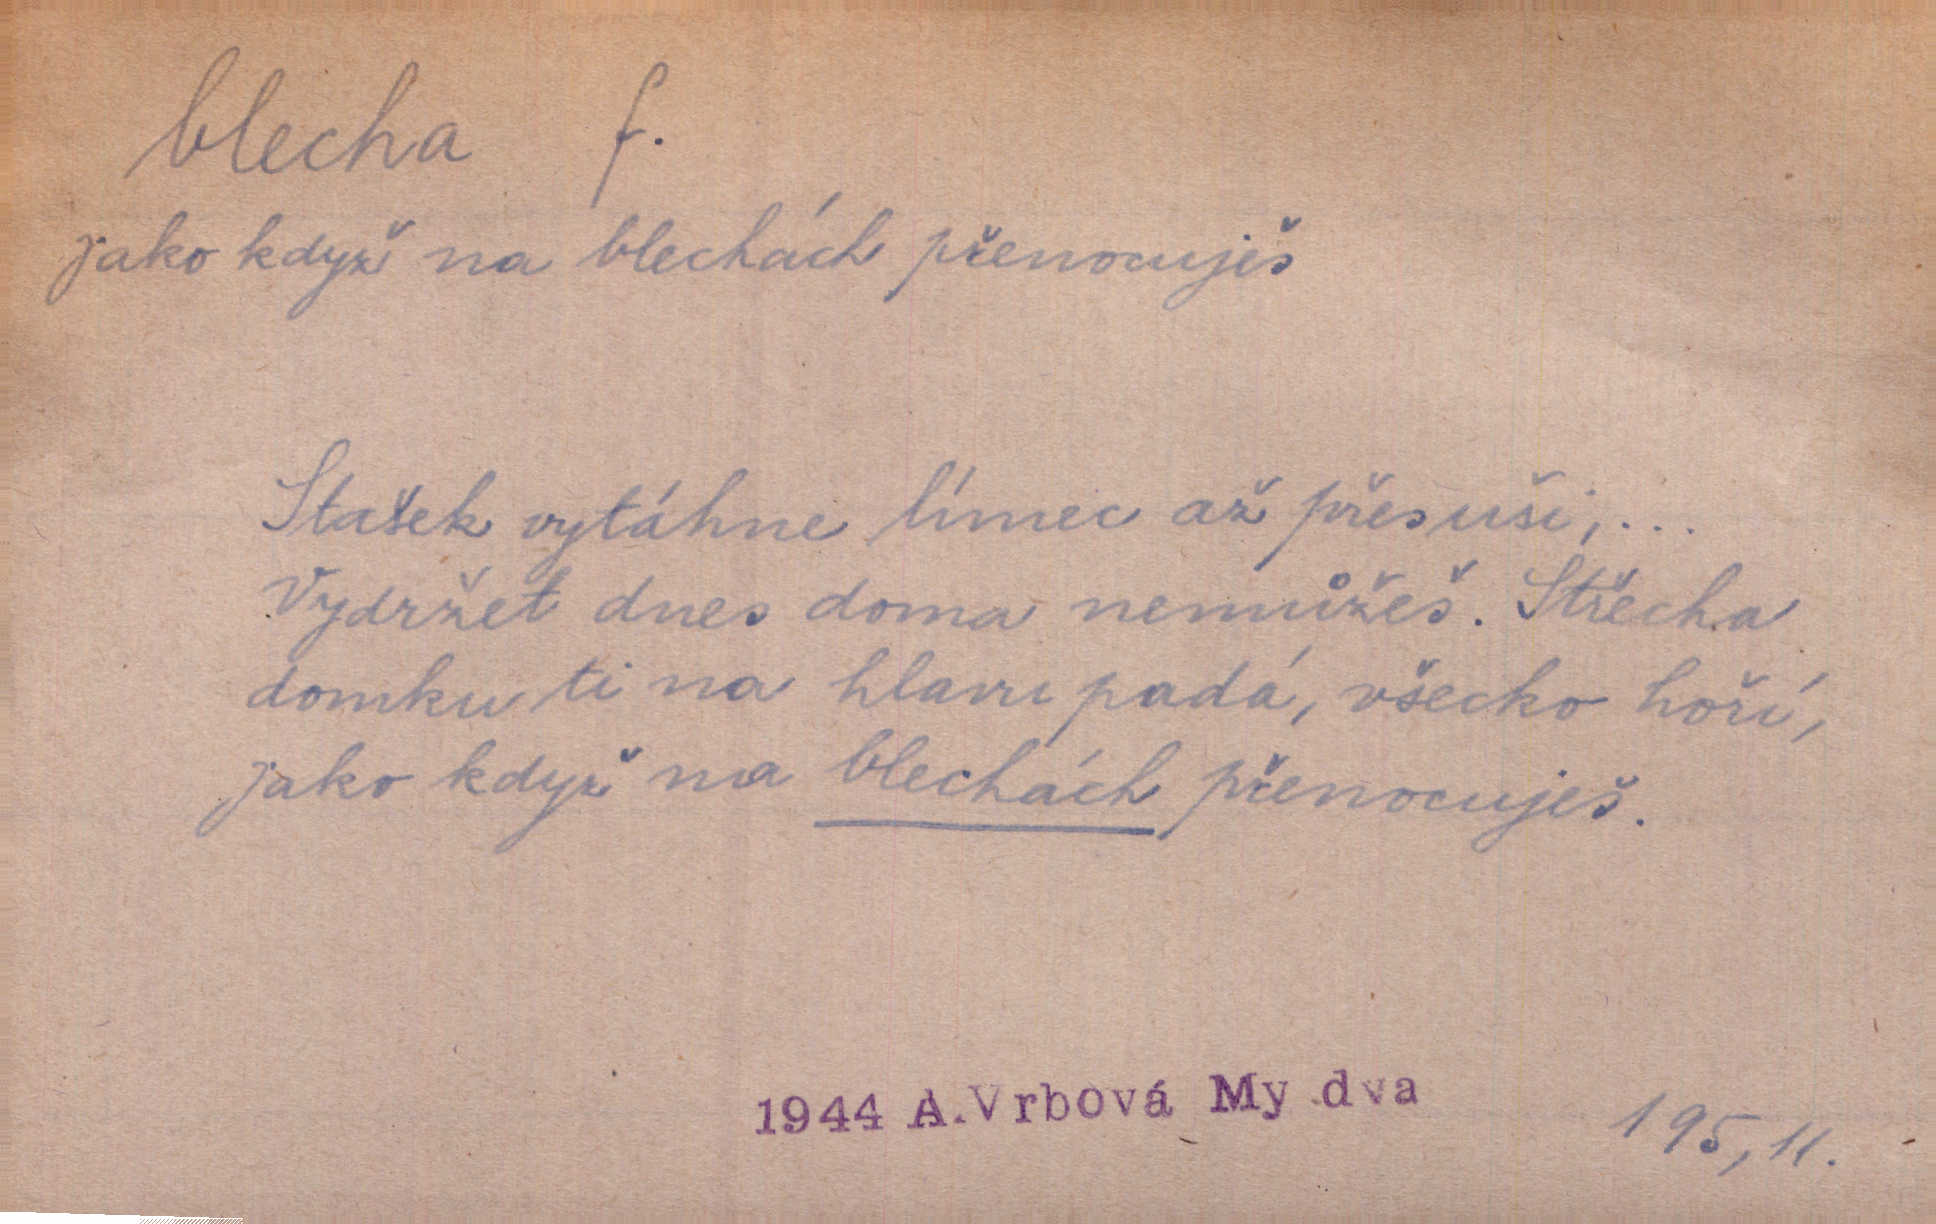 blecha f.
jako když na blechách přenocuješ
Stašek vytáhne límec až přes uši, ...
Vydržet dnes doma nemůžeš. Střecha
domku ti na hlavu padá, všecko hoří,
jako když na blechách přenocuješ.
1944 A.Vrbová My dva
195, 11.